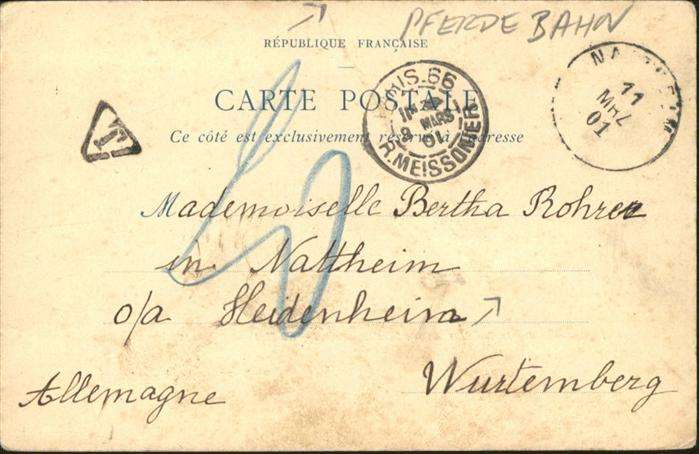 PFERDEBAHN
RÉPUBLIQUE FRANÇAISE
CARTE POSTALE
Ce côté est exclusivement réservé à l'adresse
T
PARIS. 66
MARS
01
R. MEISSONIER
NATTHEIM
11
MRZ
01
Mademoiselle Bertha Rohrer
in Nattheim
o/a Heidenheim
Allemagne
Wurtemberg